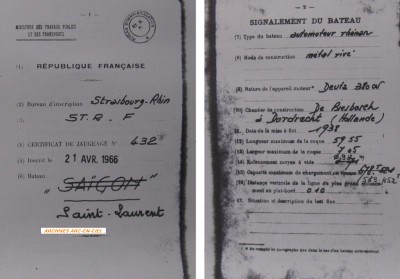 — 1 —
MINISTÈRE DES TRAVAUX PUBLICS
ET DES TRANSPORTS
(1) RÉPUBLIQUE FRANÇAISE
(2) Bureau d'inscription Strasbourg-Rhin
ST. R. F
(4) CERTIFICAT DE JAUGEAGE N° 432
(5) Inscrit le 21 AVR. 1966
(6) Bateau:
"SAÏGON"
Saint-Laurent
ARCHIVES ARC-EN-CIEL
— 2 —
SIGNALEMENT DU BATEAU
(7) Type du bateau automoteur rhénan
(8) Mode de construction métal rivé
(9) Nature de l'appareil moteur* Deutz
(10) Chantier de construction De Biesbosch
à Dordrecht (Hollande)
Date de la mise à flot 1938
Longueur maximum de la coque 59 55
Largeur maximum de la coque 7 05
(14) Enfoncement moyen à vide
(15) Capacité maximum de chargement en tonnes
(16) Distance verticale de la ligne de plus grand
nord au plat-bord 0.10
Situation et description du